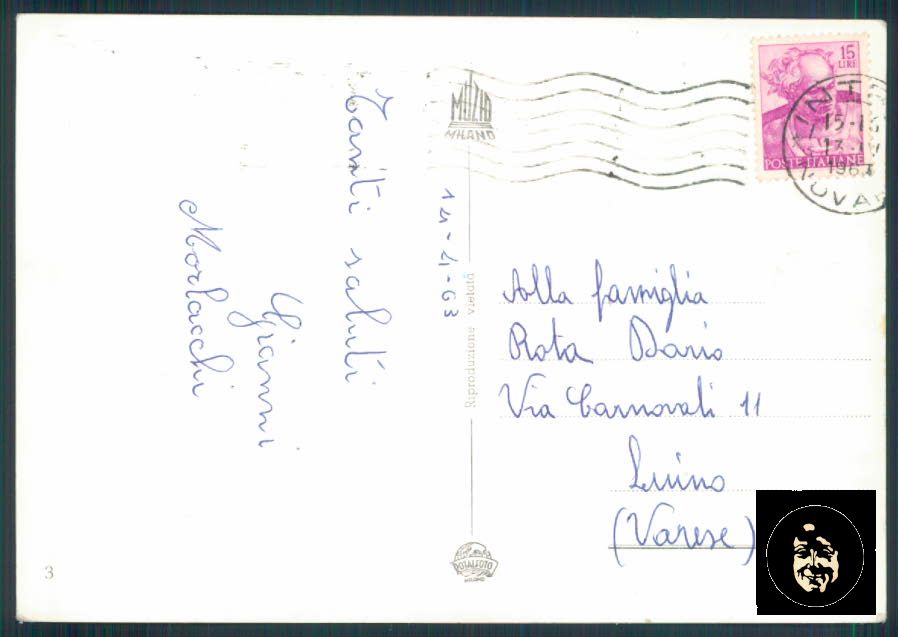 Tanti saluti
Gianni
Morlacchi
14-4-63
MILANO
Riproduzione vietata
ROTALFOTO
MILANO
3
15
LIRE
POSTE ITALIANE
15-
1963
Alla famiglia
Rota Dario
Via Carnovali 11
Luino
(Varese)